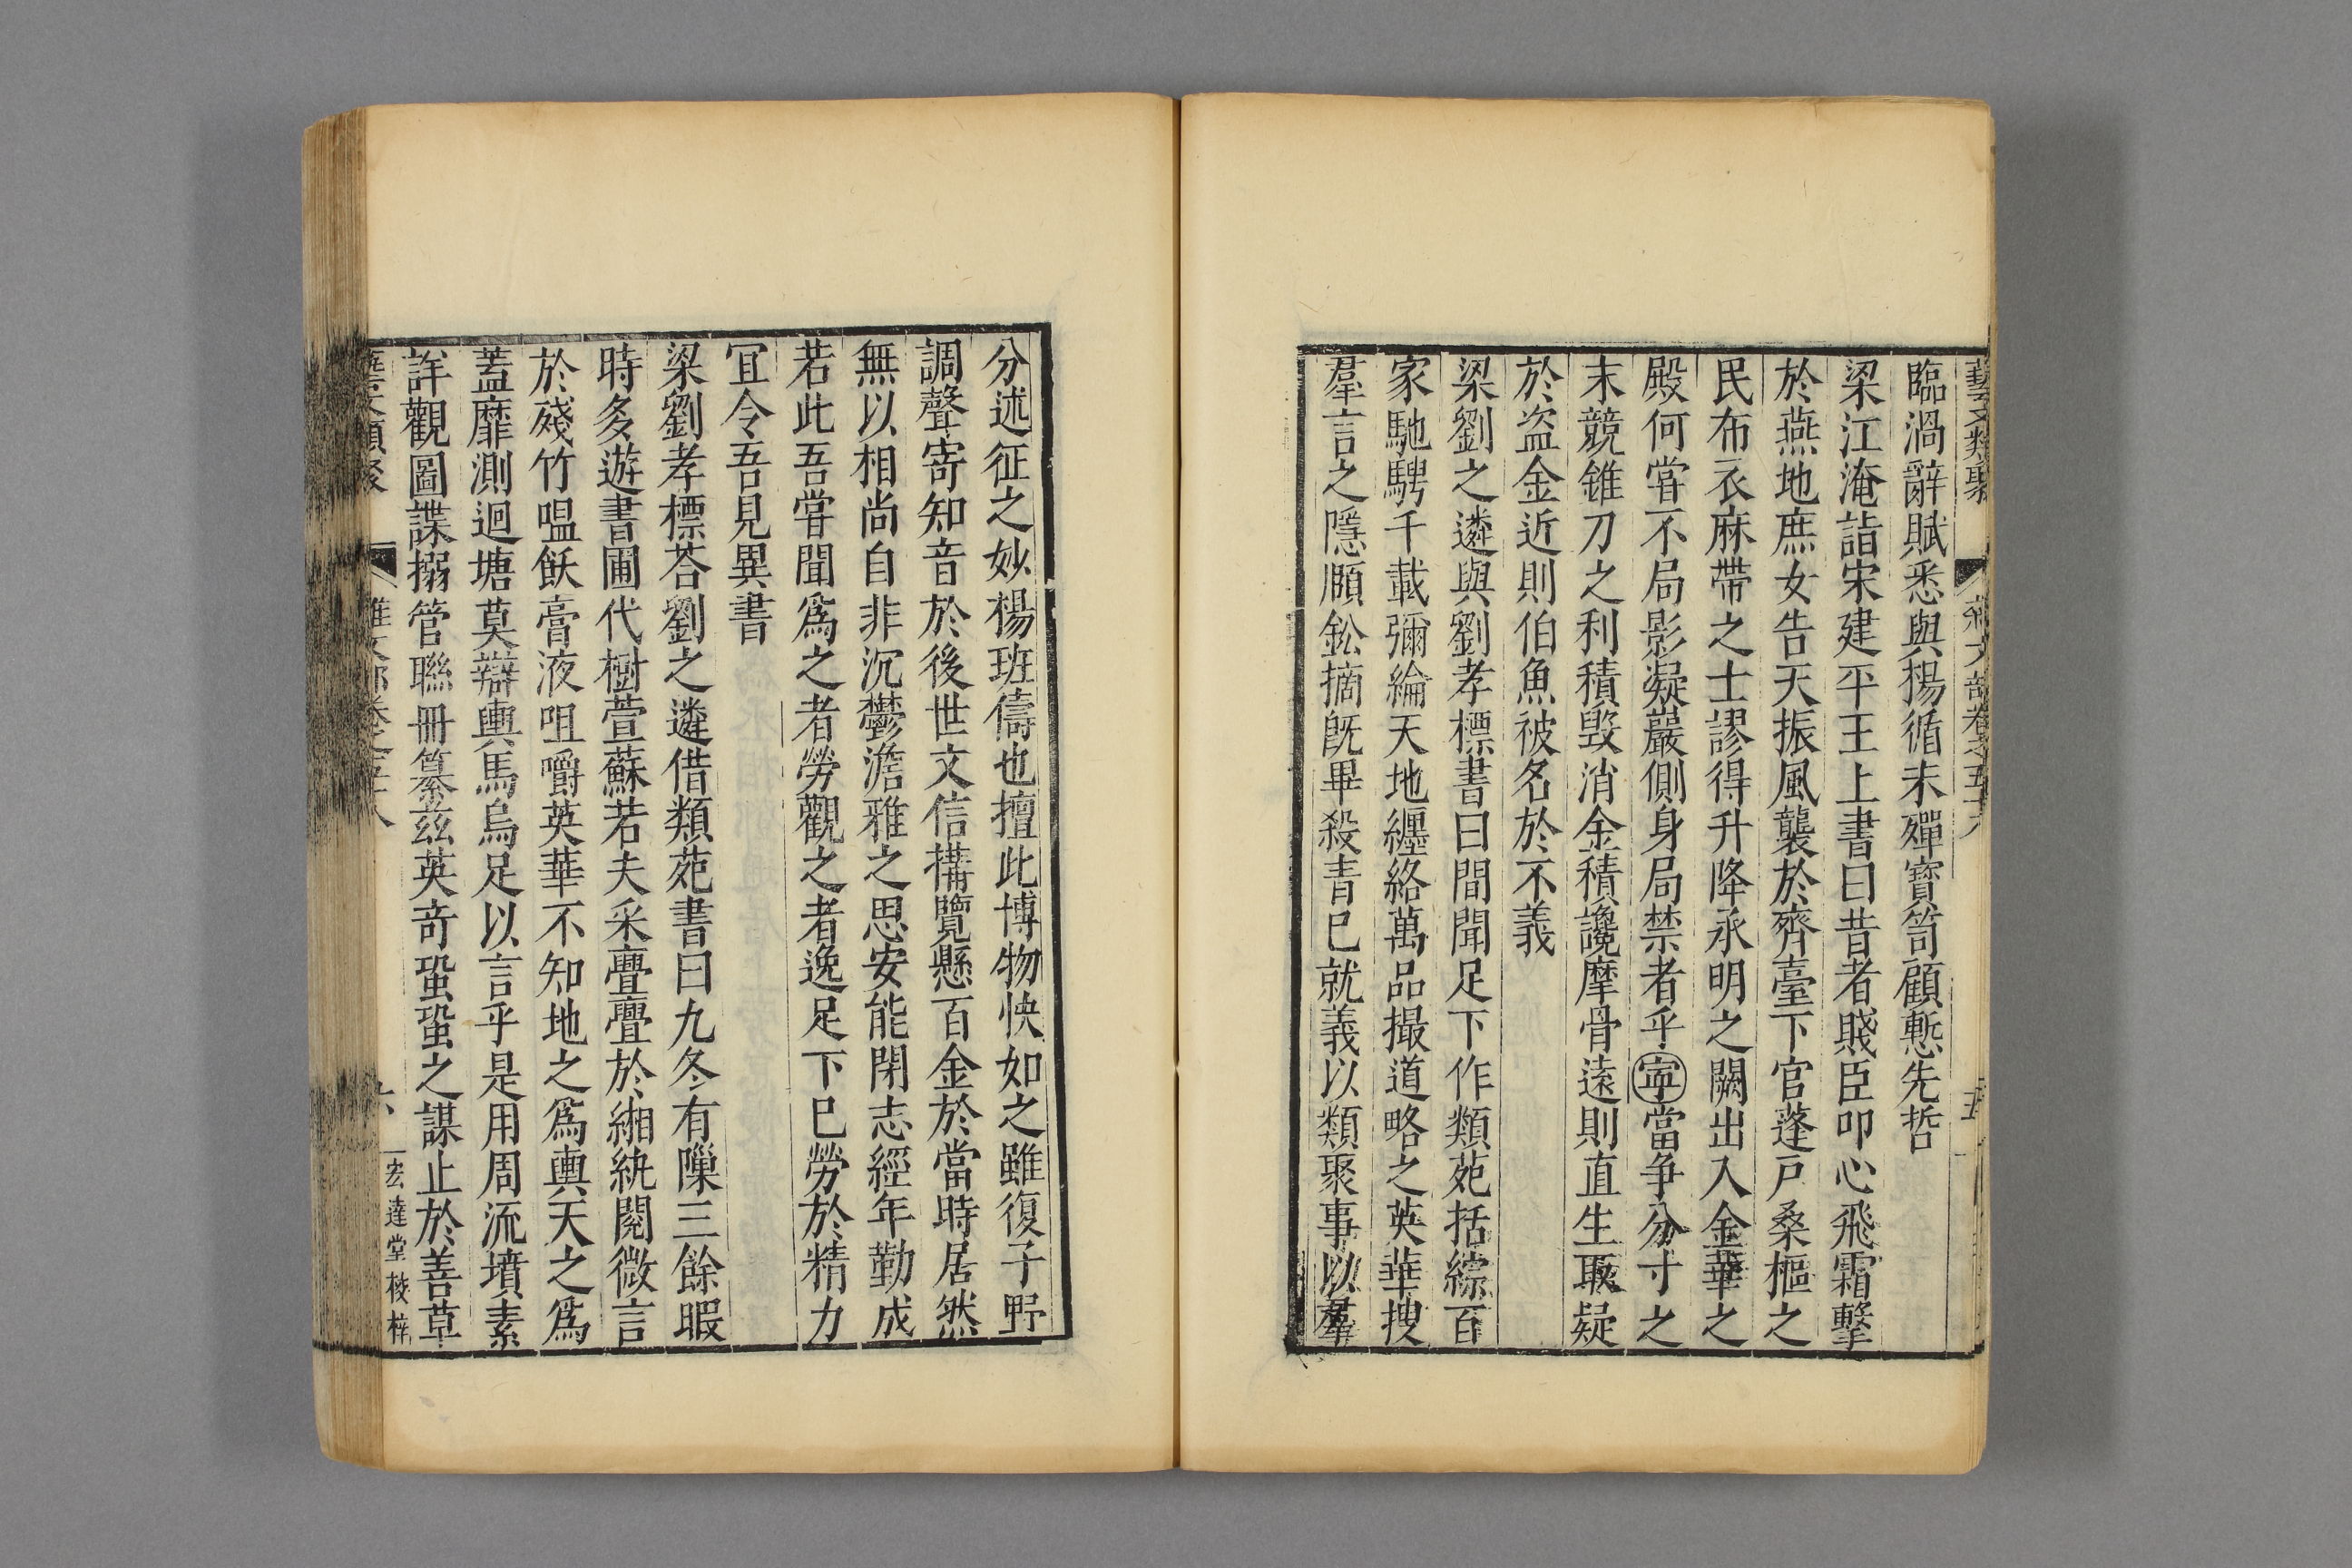 藝文類聚 雜文部卷之五十八 五
臨渦辭賦悉與揚循未殫寳笥顧慙先哲
梁江淹詣宋建平王上書曰昔者賤臣叩心飛霜擊
於燕地庶女告天振風襲於齊臺下官蓬戸桑樞之
民布衣麻帶之士謬得升降承明之闕出入金華之
殿何甞不局影凝嚴側身局禁者乎寧當争分寸之
末競錐刀之利積毀消金積讒摩骨遠則直生取疑
於盗金近則伯魚被名於不義
梁劉之遴與劉孝標書曰間聞足下作類苑括綜百
家馳騁千載彌綸天地纒絡萬品撮道略之英華搜
羣言之隱賾鈆摘既畢殺青已就義以類聚事以羣
分述征之妙楊班儔也擅此博物快如之雖復子野
調聲寄知音於後世文信構覽懸百金於當時居然
無以相尚自非沉鬱澹雅之思安能閉志經年勤成
若此吾甞聞為之者勞觀之者逸足下已勞於精力
冝令吾見異書
梁劉孝標荅劉之遴借類苑書曰九冬有隟三餘暇
時多遊書圃代樹萱蘇若夫采亹亹於緗紈閲微言
於殘竹嗢飫膏液咀嚼英華不知地之為輿天之為
蓋靡測迴塘莫辯輿馬烏足以言乎是用周流墳素
詳觀圖諜搦管聯冊纂兹英奇蛩蛩之謀止於善草
藝文類聚 雜文部卷之五十八 六 宏達堂校梓